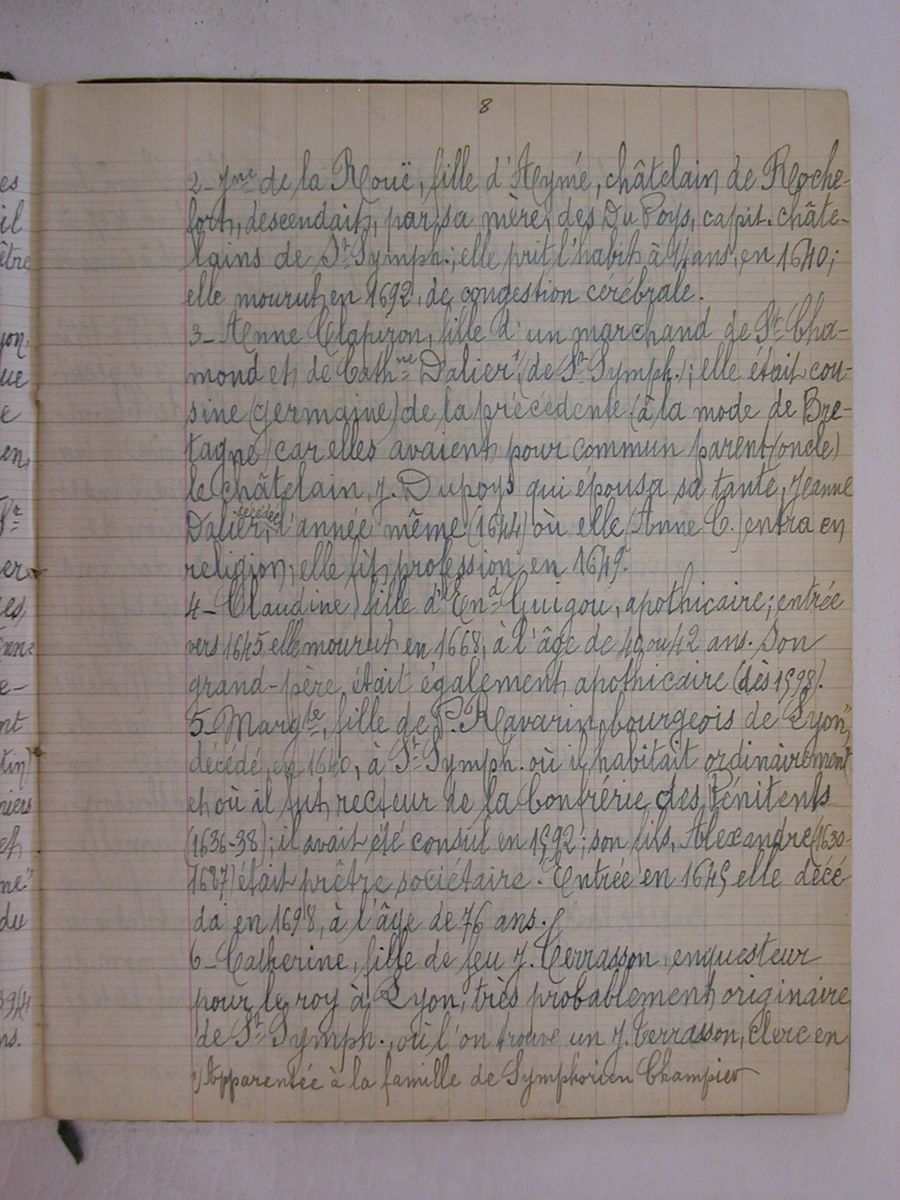 8
2_ Jne de la Rouë, fille d'Aymé, châtelain de Roche-
fort, descendait, par sa mère, des Du Poys, capit. châte-
lains de St Symph.; elle prit l'habit à 14 ans, en 1640;
elle mourut en 1692, de congestion cérébrale.
3_ Anne Clapeyron, fille d'un marchand de St Cha-
mond et de Cathne Dalier 1) (de St Symph.); elle était cou-
sine (germaine) de la précédente (à la mode de Bre-
tagne) car elles avaient pour commun parent (oncle)
le châtelain J. Dupoys qui épousa sa tante, Jeanne
Dalier, décédée l'année même (1644) où elle (Anne C.) entra en
religion; elle fit profession en 1649.
4_ Claudine, fille d'End Guigou, apothicaire; entrée
vers 1645 elle mourut en 1668, à l'âge de 40 ou 42 ans. Son
grand-père était également apothicaire (dès 1598).
5_ Margte, fille de P. Ravarin, bourgeois de Lyon,
décédé, en 1640, à St Symph. où il habitait ordinairement
et où il fut recteur de la Confrérie des Pénitents
(1636-38); il avait été consul en 1592; son fils, Alexandre (1630-
1687) était prêtre sociétaire. Entrée en 1645 elle décé
da en 1698, à l'âge de 76 ans.
6_ Catherine, fille de feu J. Terrasson, enquesteur
pour le roy à Lyon, très probablement originaire
de St Symph., où l'on trouve un J. Terrasson, clerc en
1) Apparentée à la famille de Symphorien Champier